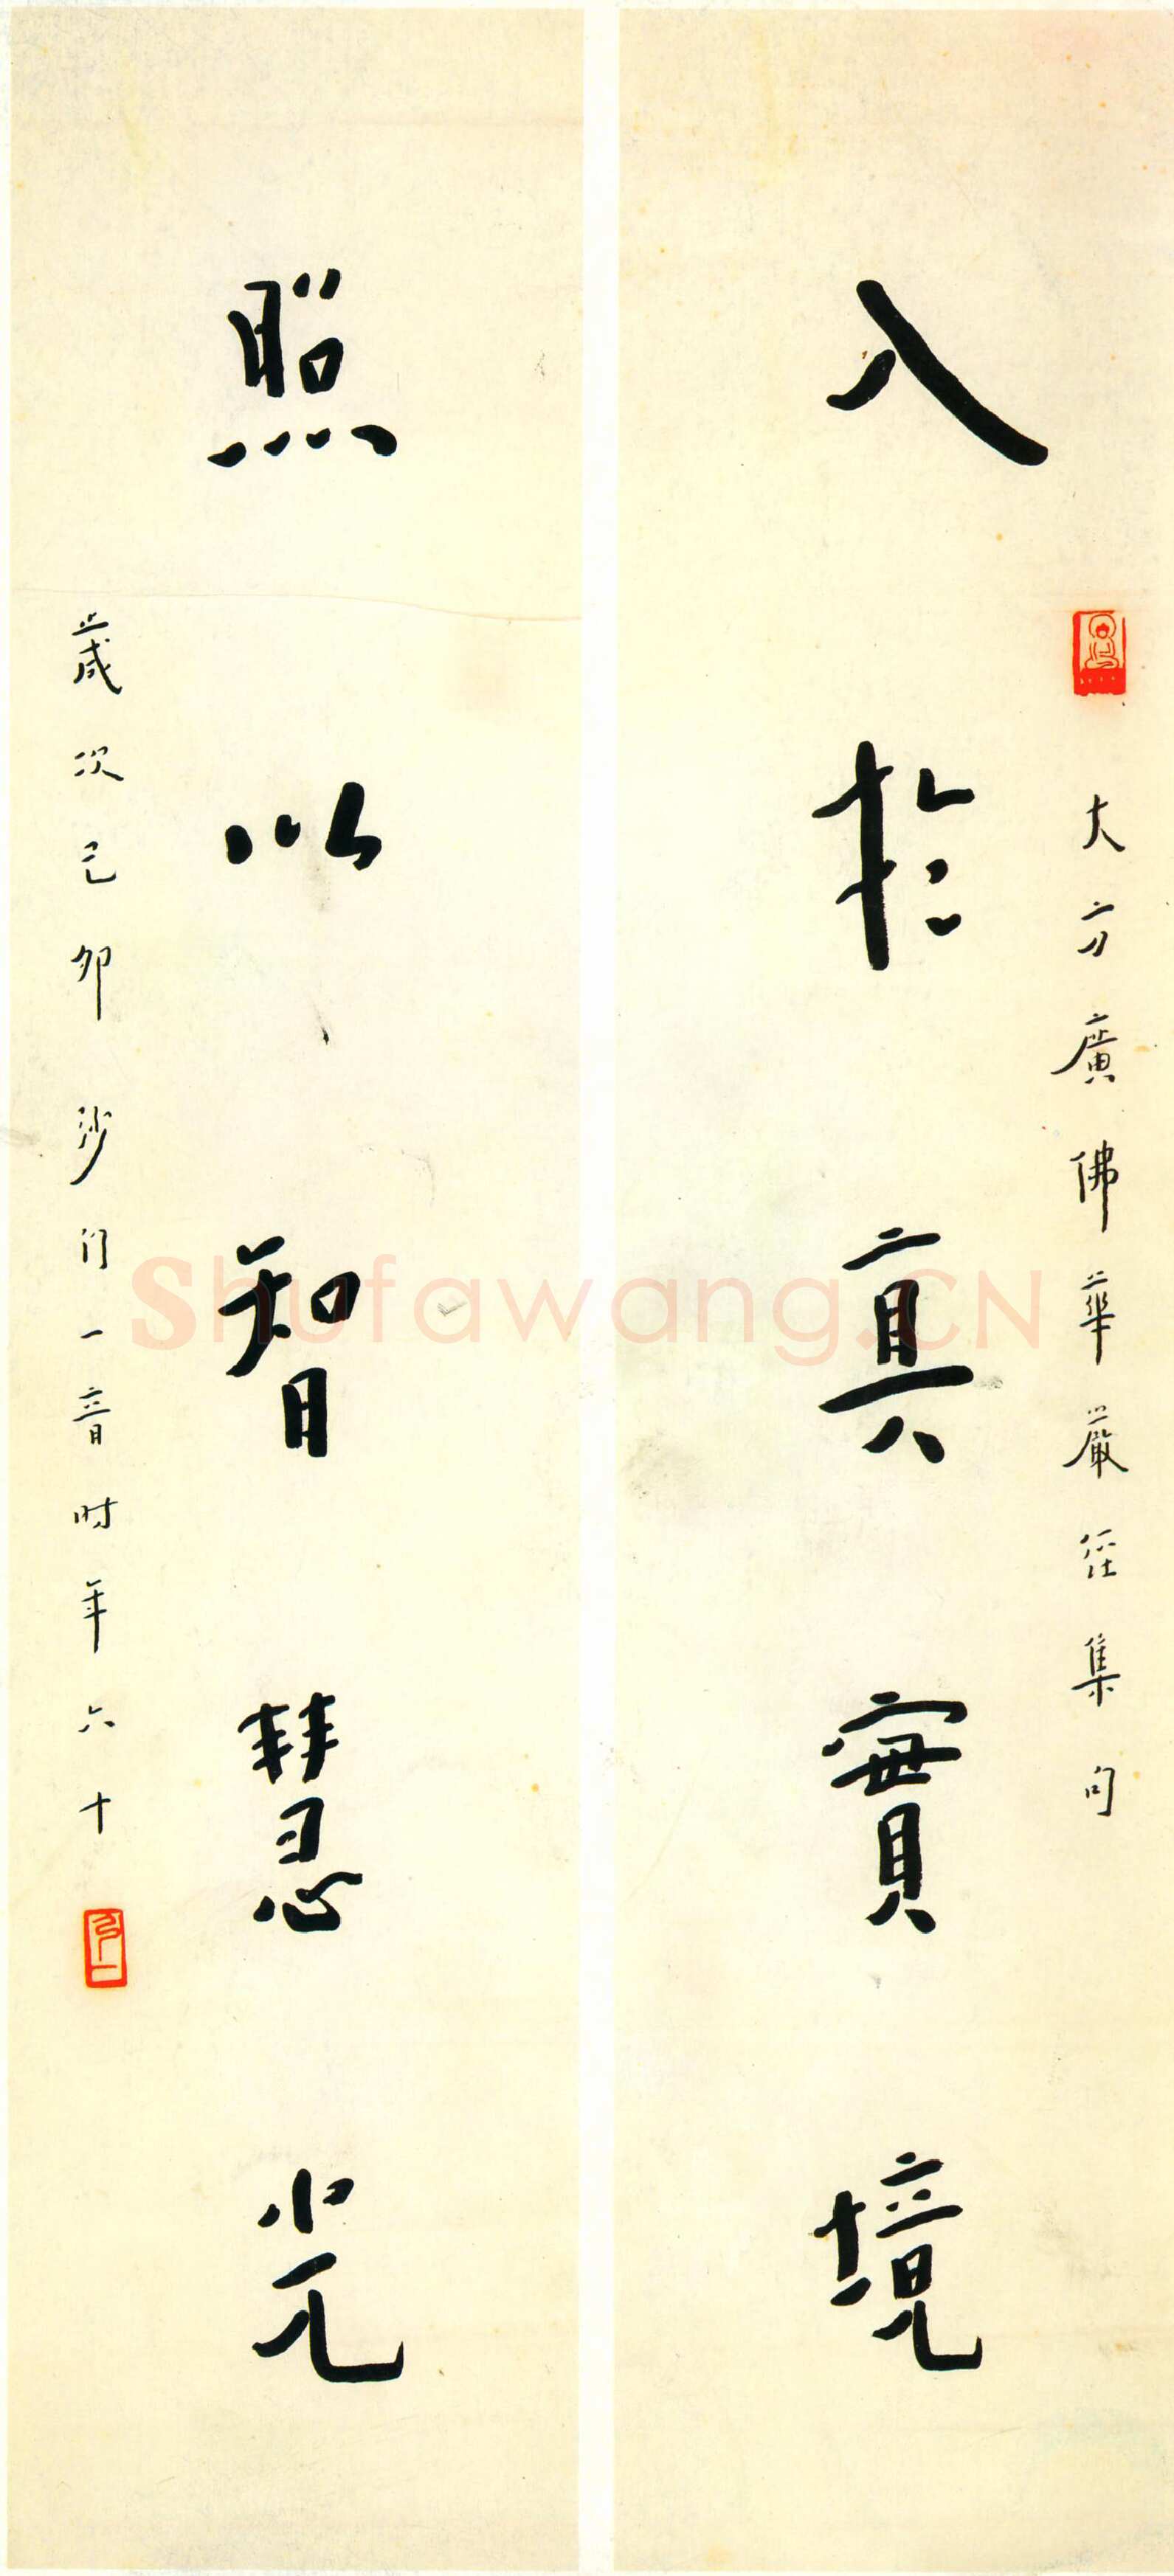 大方廣佛華嚴經集句
入於真實境
照以智慧光
歲次己卯沙門一音時年六十
弘一
Shufawang.CN